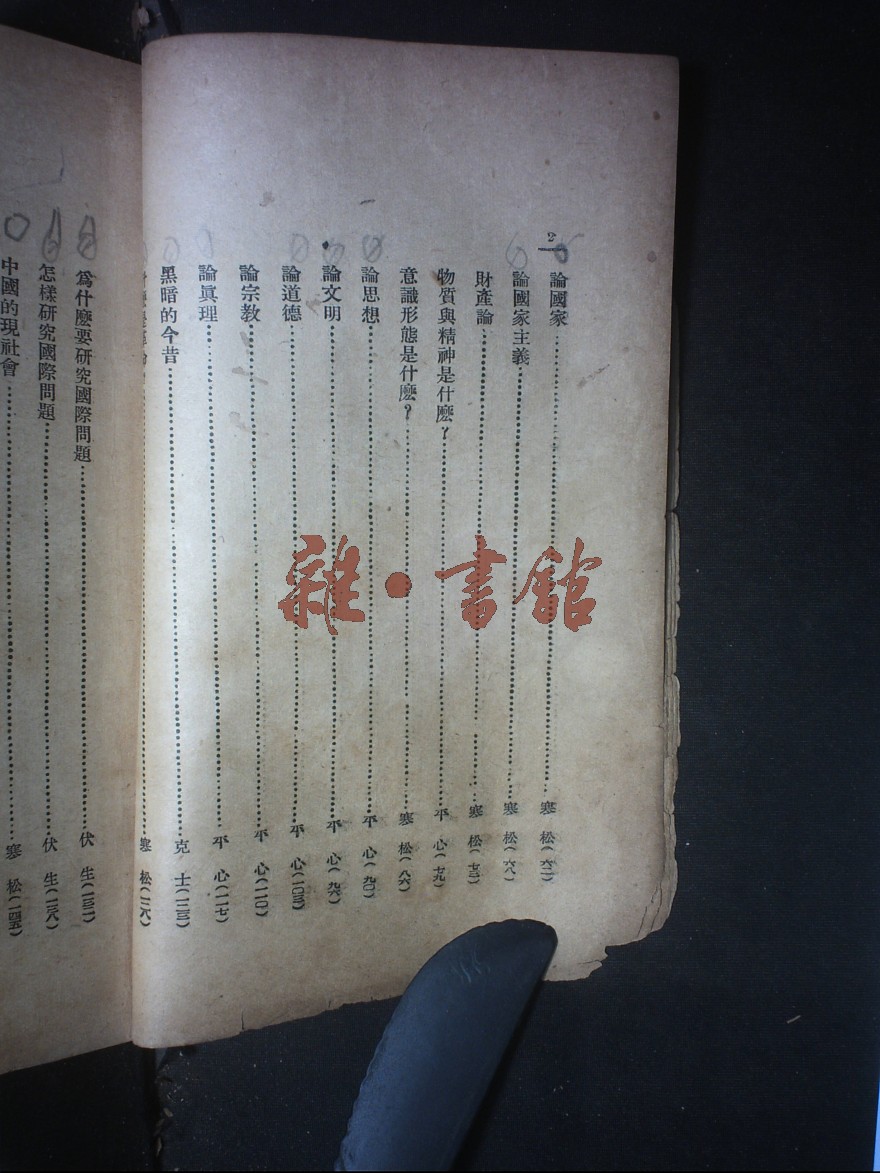 2
論國家……寒松(六二)
論國家主義……寒松(六八)
財產論……寒松(七三)
物質與精神是什麼？……平心(七九)
意識形態是什麼？……寒松(八六)
論思想……平心(九〇)
論文明……平心(九六)
論道德……平心(一〇三)
論宗教……平心(一一〇)
論眞理……平心(一一七)
黑暗的今昔……克士(一二三)
……寒松(一二六)
爲什麼要研究國際問題……伏生(一三二)
怎樣研究國際問題……伏生(一三八)
中國的現社會……寒松(一四五)
雜·書館